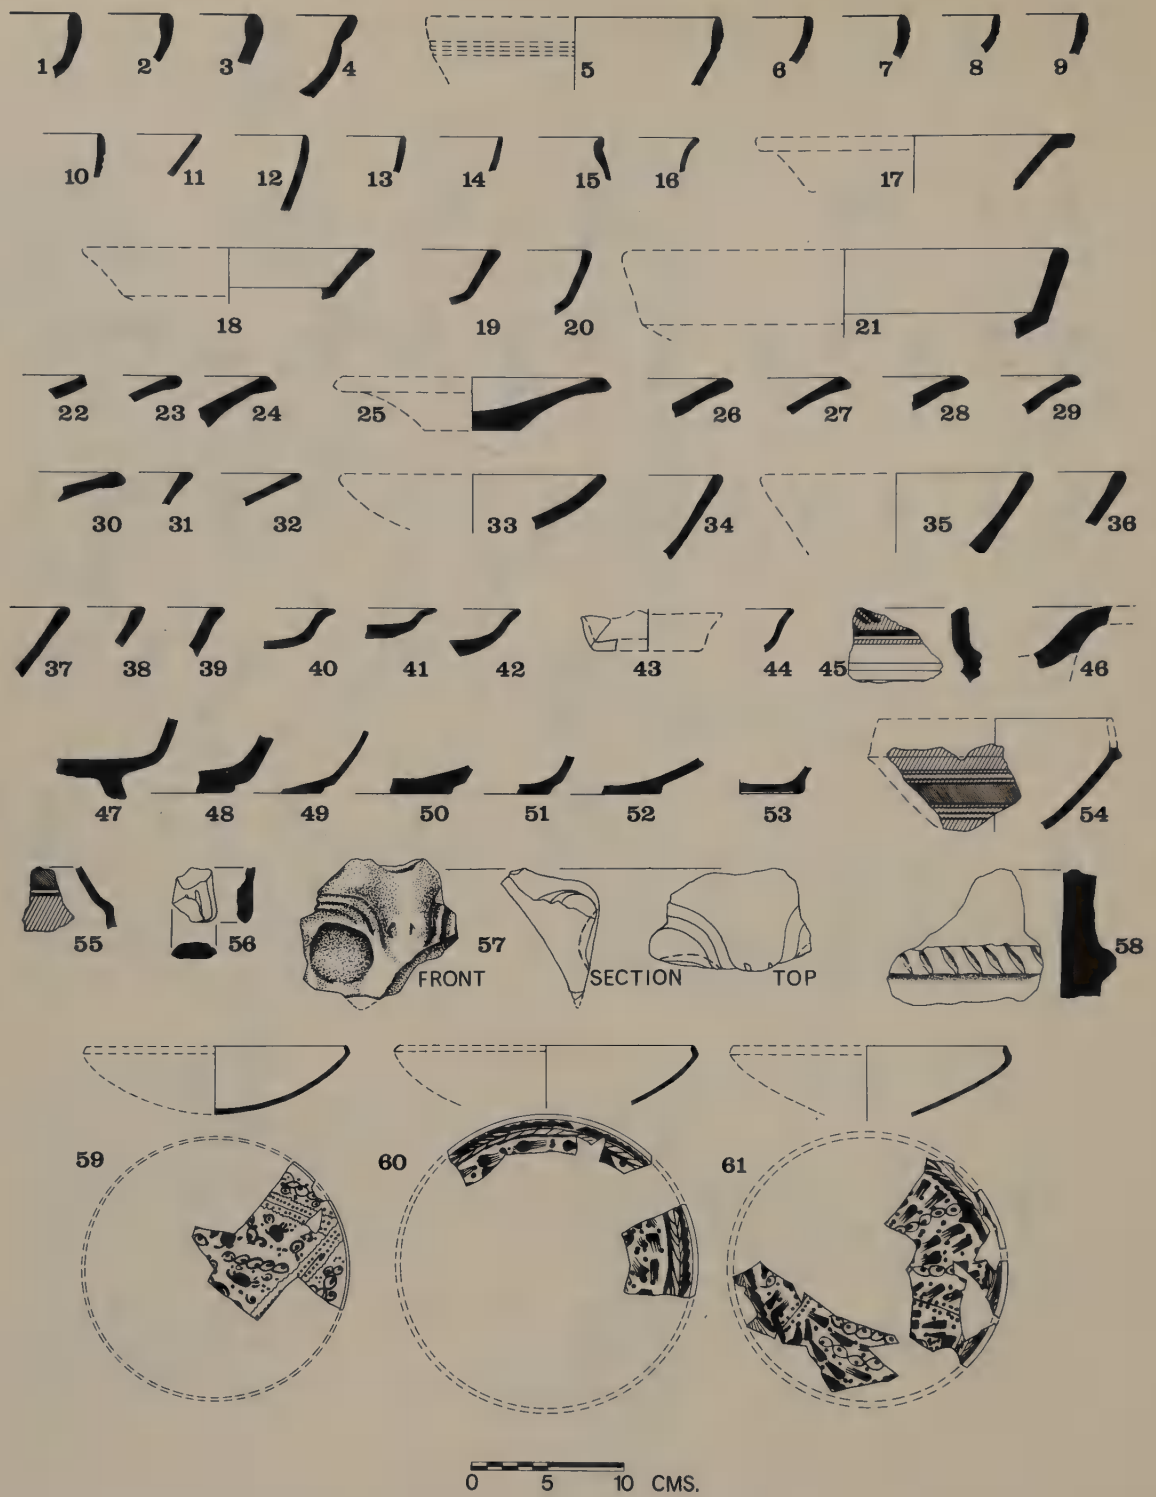 1 2 3 4 5 6 7 8 9
10 11 12 13 14 15 16 17
18 19 20 21
22 23 24 25 26 27 28 29
30 31 32 33 34 35 36
37 38 39 40 41 42 43 44 45 46
47 48 49 50 51 52 53 54
55 56 57 58
FRONT SECTION TOP
59 60 61
0 5 10 CMS.